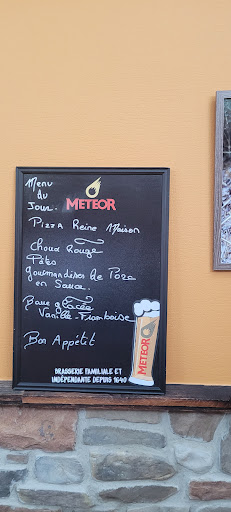 Menu
du
Jour.
METEOR
Pizza Reine Maison
Choux Rouge
Pâtes
gourmandises de Porc
en Sauce
glacée
Vanille-Framboise
Bon Appétit
METEOR
BRASSERIE FAMILIALE ET
INDÉPENDANTE DEPUIS 1640